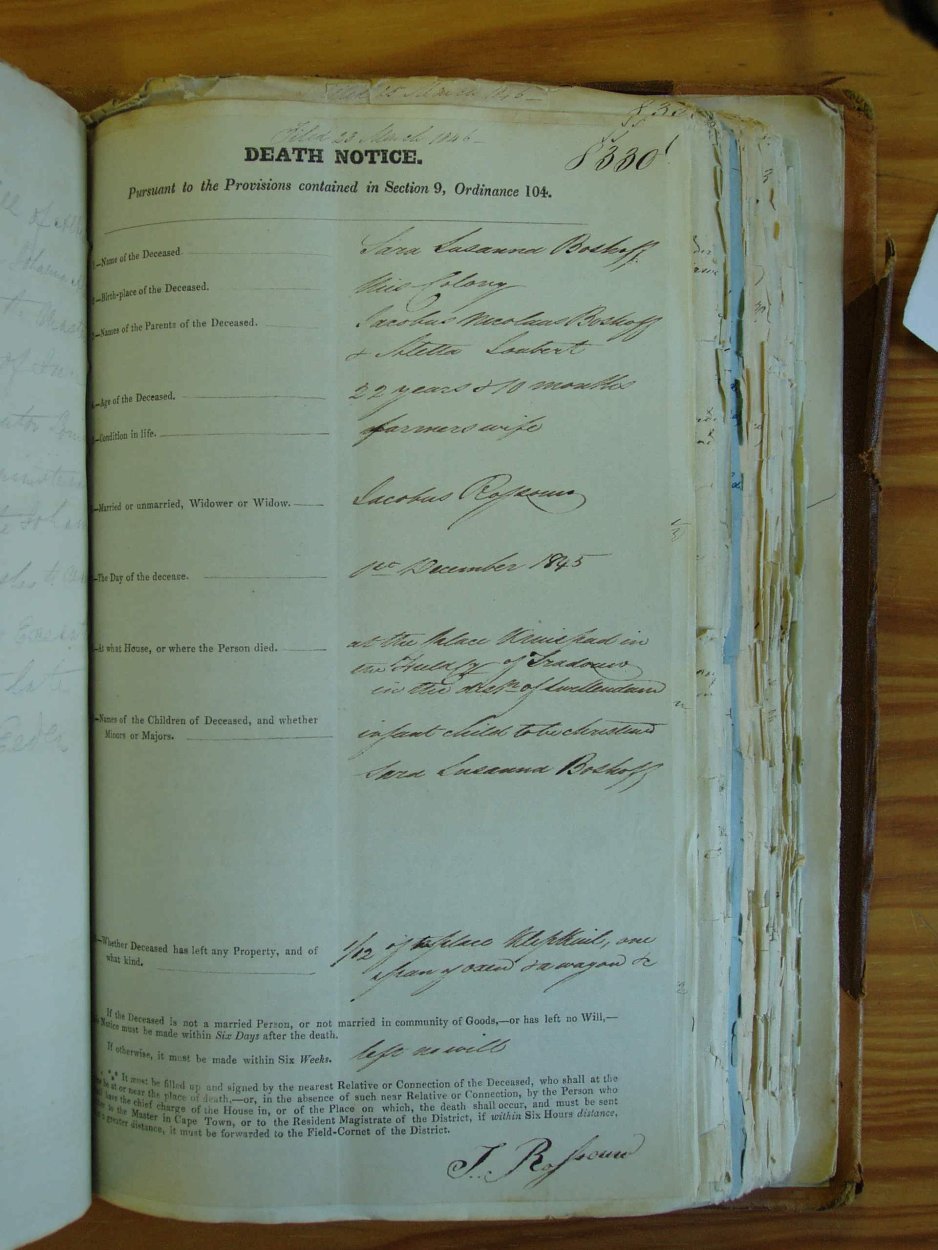 25 March 1846
Filed 23 March 1846
8330
DEATH NOTICE.
Pursuant to the Provisions contained in Section 9, Ordinance 104.
—Name of the Deceased. Sara Susanna Boshoff
—Birth-place of the Deceased. this Colony
—Names of the Parents of the Deceased. Jacobus Nicolaas Boshoff
& Aletta Joubert
—Age of the Deceased. 22 years & 10 months
—Condition in life. farmers wife
—Married or unmarried, Widower or Widow. Jacobus Rossouw
—The Day of the decease. December 1845
—At what House, or where the Person died. at the place in
the of Tradouw
in the distt. of Swellendam
—Names of the Children of Deceased, and whether infant child to be christend
Minors or Majors.
Sara Susanna Boshoff
—Whether Deceased has left any Property, and of 1/12 of the place Klip , one
what kind. span of oxen & a wagon &c
If the Deceased is not a married Person, or not married in community of Goods,—or has left no Will,—
Notice must be made within Six Days after the death.
If otherwise, it must be made within Six Weeks. left no will
*** It must be filled up and signed by the nearest Relative or Connection of the Deceased, who shall at the
be at or near the place of death,—or, in the absence of such near Relative or Connection, by the Person who
have the chief charge of the House in, or of the Place on which, the death shall occur, and must be sent
to the Master in Cape Town, or to the Resident Magistrate of the District, if within Six Hours distance,
greater distance, it must be forwarded to the Field-Cornet of the District.
J. Rossouw